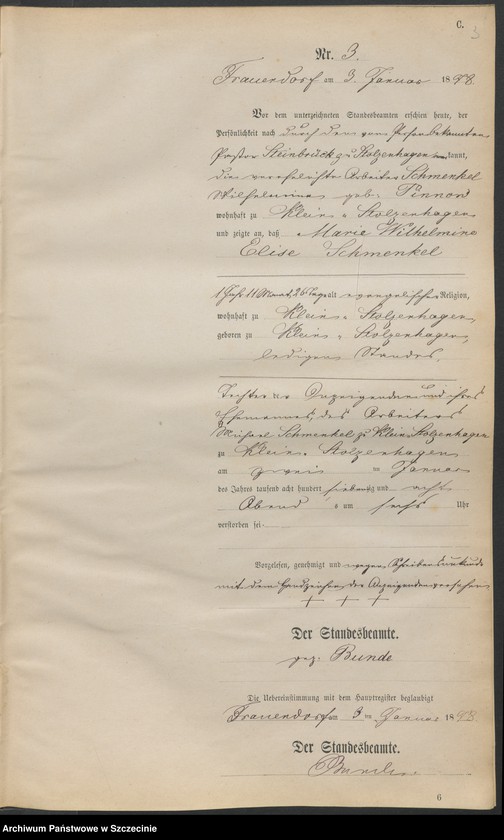 C.
3
Nr. 3.
Frauendorf am 3. Januar 1878.
Vor dem unterzeichneten Standesbeamten erschien heute, der
Persönlichkeit nach durch den von Person bekannten
Pastor Steinbrück zu Stolzenhagen kannt,
die verehelichte Arbeiter Schmenkel
Wilhelmine geb. Tinnow
wohnhaft zu Klein - Stolzenhagen
und zeigte an, daß Marie Wilhelmine
Elise Schmenkel
1 Jahr 11 Monat, 26 Tage alt evangelischer Religion,
wohnhaft zu Klein - Stolzenhagen,
geboren zu Klein - Stolzenhagen,
ledigen Standes,
Tochter der Anzeigenden und ihres
Ehemannes, des Arbeiters
Michael Schmenkel zu Klein Stolzenhagen
zu Klein - Stolzenhagen
am zwei ten Januar
des Jahres tausend acht hundert siebenzig und acht
Abend s um sechs Uhr
verstorben sei.
Vorgelesen, genehmigt und wegen Schreibensunkunde
mit dem Handzeichen der Anzeigenden versehen
+ + +
Der Standesbeamte.
gez. Bunde
Die Uebereinstimmung mit dem Hauptregister beglaubigt
Frauendorf am 3 ten Januar 1878.
Der Standesbeamte.
Bunde
6
Archiwum Państwowe w Szczecinie